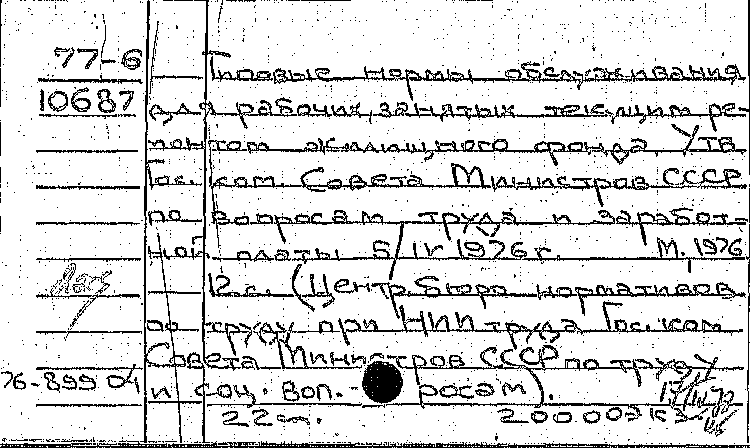 77-6
10687
Типовые нормы обслуживания
для рабочих, занятых текущим ре-
монтом жилищного фонда. Утв.
Гос. ком. Совета Министров СССР
по вопросам труда и заработ-
ной платы 5/IV 1976 г. М. 1976
12 с. (Центр. бюро нормативов
по труду при НИИ труда Гос. ком.
Совета Министров СССР по труду
76-89904 и соц. воп. - росам).
22 20000экз